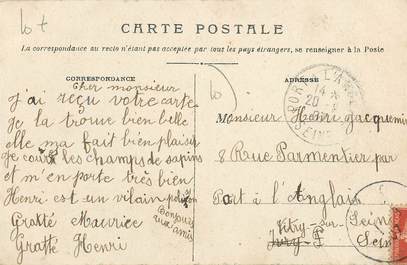 lot
CARTE POSTALE
La correspondance au recto n'étant pas acceptée par tous les pays étrangers, se renseigner à la Poste
CORRESPONDANCE
Cher monsieur
j'ai reçu votre carte
je la trouve bien belle
elle ma fait bien plaisir
je cours les champs de sapins
et m'en porte très bien
Henri est un vilain polisson
Bonjour
aux amis
Gratté Maurice
Gratté Henri
ADRESSE
PORT L'ANGLAIS
14
20
SEINE
Monsieur Henri Jacquemin
8 Rue Parmentier par
Port à l'Anglais
Vitry-sur-Seine
Ivry
Seine